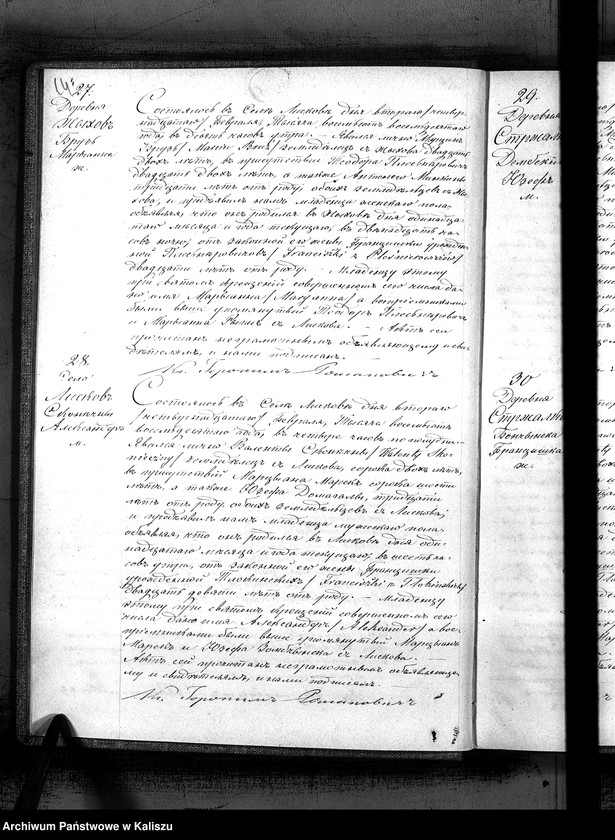 27.
Деревня
Жыховъ
Врубъ
Марыанна
ж.
Состоялось въ Селѣ Лисковѣ дня втораго /четыр-
надцатаго/ Февраля, тысяча восемьсотъ восемьдесятаго
года, въ десять часовъ утра. — Явился лично Марцинъ
Врубъ / земледѣлецъ съ Жыхова двадцати
двохъ лѣтъ, въ присутствіи Теодора
двадцати двохъ лѣтъ, а также Антонія
тридцати лѣтъ отъ роду обоихъ земледѣльцовъ съ Жы-
хова, и предъявилъ намъ младенца женскаго пола
объявляя что онъ родился въ Жыховѣ дня одинадца-
таго мѣсяца и года текущаго, въ двѣнадцать ча-
совъ ночи, отъ законной его жены Францишки урожден-
ной / Franciszki z
двадцати лѣтъ отъ роду. — Младенцу этому
при святомъ крещеніи совершенномъ сего числа да-
но имя Марыанна / Maryanna / а воспріемниками
были выше упомянутый Теодоръ
и Марыанна съ Лискова. — Актъ сей
прочитанъ неграмотнымъ объявляющему и сви-
дѣтелямъ, и нами подписанъ
Кс. Іеронимъ Романовичъ
28.
Село
Лисковъ
Александръ
м.
Состоялось въ Селѣ Лисковѣ дня втораго
/четырнадцатаго/ Февраля, тысяча восемьсотъ
восемьдесятаго года, въ четыре часовъ по полудни.
Явился лично Валенты / Walenty
/ земледѣлецъ съ Лискова, сорока двохъ лѣтъ,
въ присутствіи Марцыана Марека сорока шести
лѣтъ, а также Юзефа Домагалы, тридцати
лѣтъ отъ роду обоихъ земледѣльцовъ съ Лискова,
и предъявилъ намъ младенца мужескаго пола
объявляя, что онъ родился въ Лисковѣ дня оди-
надцатаго мѣсяца и года текущаго, въ шесть ча-
совъ утра, отъ законной его жены Францишки
урожденной / Franciszki z
двадцать девяти лѣтъ отъ роду. — Младенцу
этому при святомъ крещеніи совершенномъ сего
числа дано имя Александръ / Aleksander / а вос-
пріемниками были выше упомянутый Марцыанъ
Марекъ и Юзефа съ Лискова. —
Актъ сей прочитанъ неграмотнымъ объявляюще-
му и свидѣтелямъ, и нами подписанъ
Кс. Іеронимъ Романовичъ
29.
Деревня
Юзефъ
м.
30
Деревня
Францишка
ж.
Archiwum Państwowe w Kaliszu